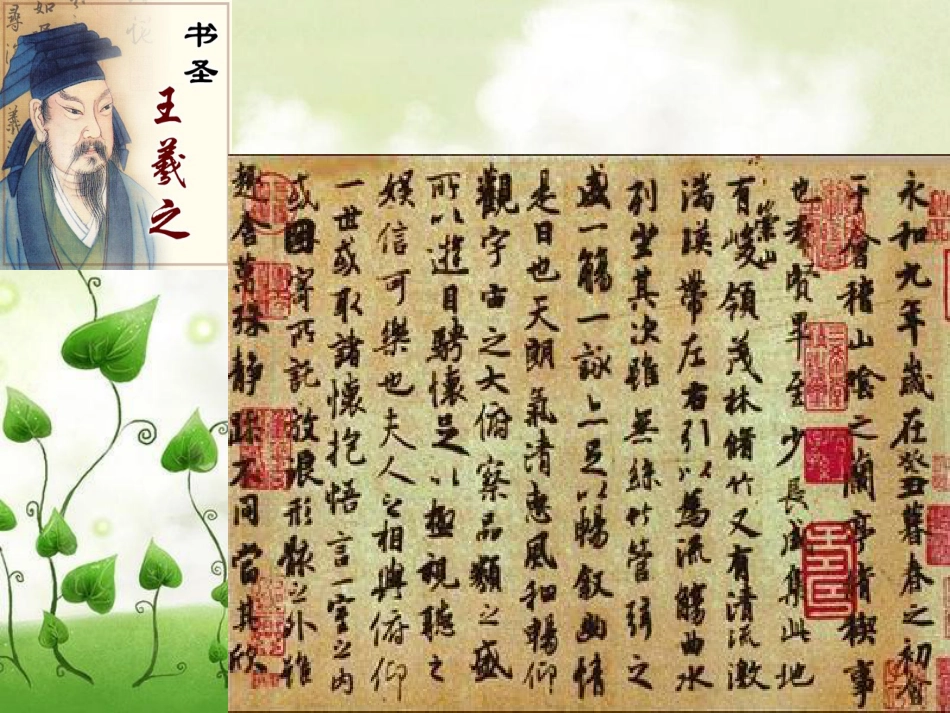 书圣
王羲之
永和九年歲在癸丑暮春之初會
于會稽山陰之蘭亭脩稧事
也羣賢畢至少長咸集此地
有崇山峻領茂林脩竹又有清流激
湍暎帶左右引以為流觴曲水
列坐其次雖無絲竹管弦之
盛一觴一詠亦足以暢敘幽情
是日也天朗氣清惠風和暢仰
觀宇宙之大俯察品類之盛
所以遊目騁懷足以極視聽之
娛信可樂也夫人之相與俯仰
一世或取諸懷抱悟言一室之內
或因寄所託放浪形骸之外雖
趣舍萬殊靜躁不同當其欣